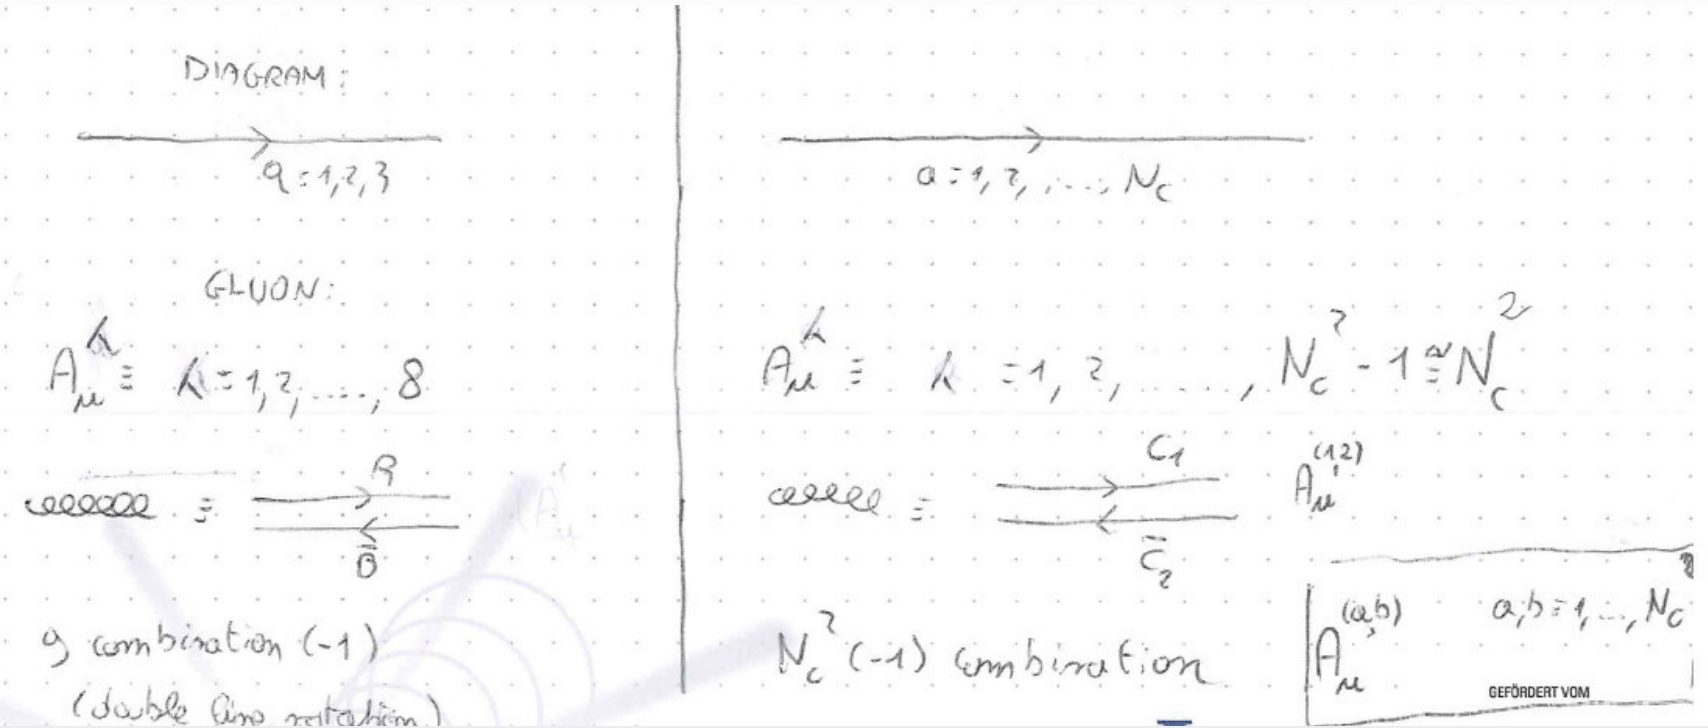 DIAGRAM:
a=1,2,3
GLUON:
A_μ^k ≡ k=1,2,....,8
R
≡
B̄
9 combination (-1)
(double line notation)
a=1,2,....,N_c
A_μ^k ≡ k =1,2,.....,N_c^2-1≅N_c^2
C_1
≡
C̄_2
A_μ^(12)
N_c^2(-1) combination
A_μ^(a,b) a,b=1,...,N_c
GEFÖRDERT VOM